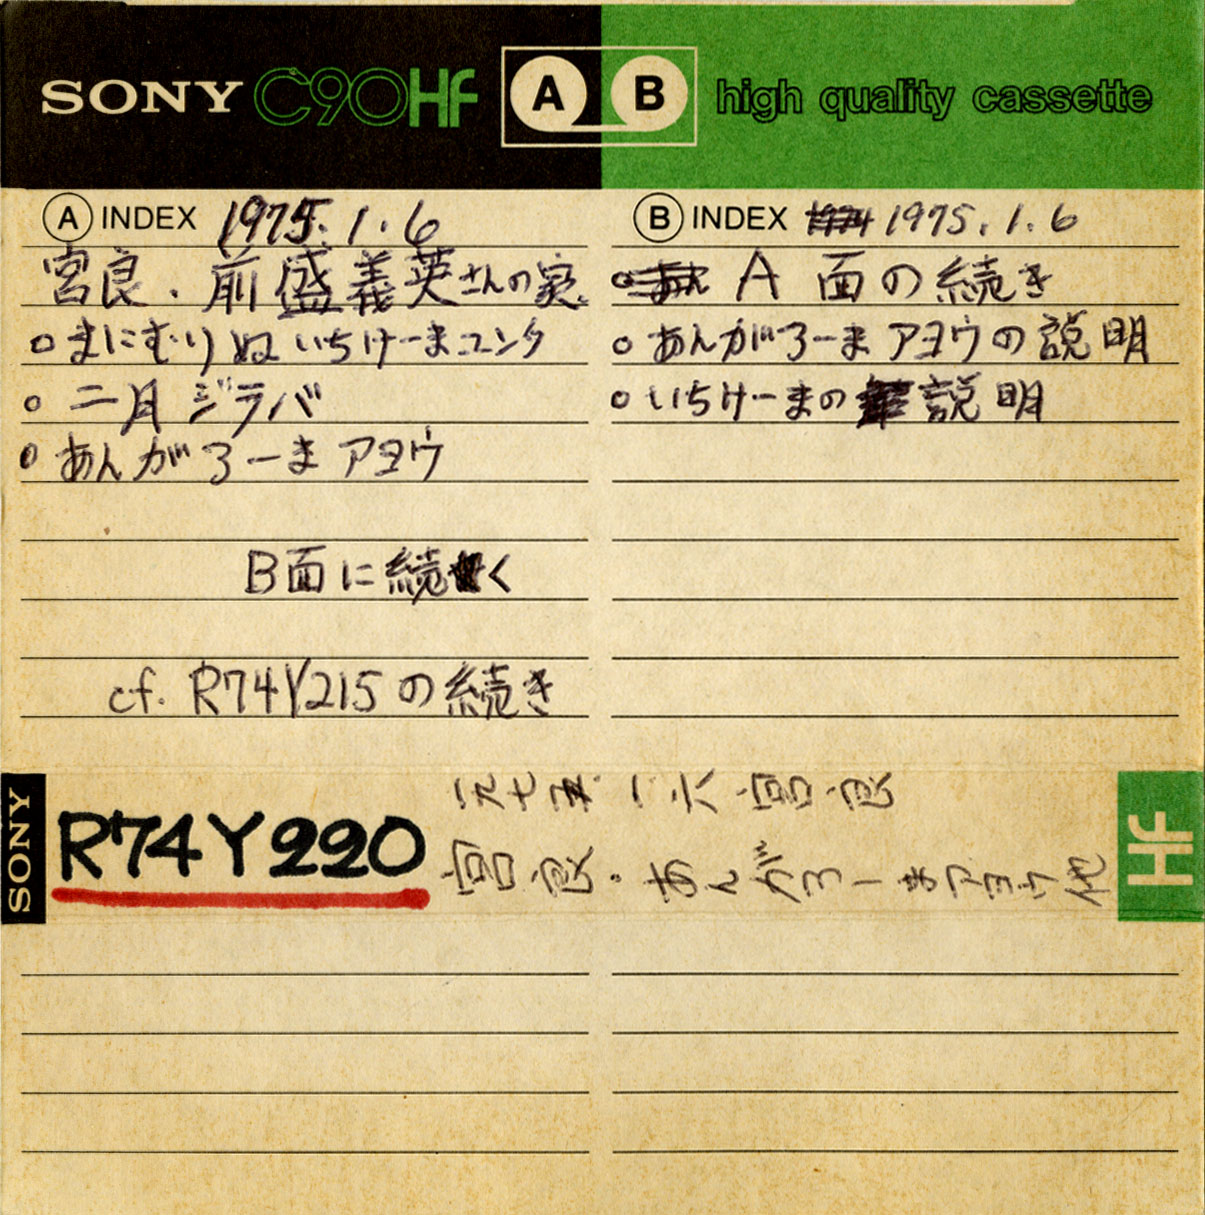 SONY C90HF A B high quality cassette
A INDEX 1975.1.6
宮良.前盛義英さんの家
○まにむりぬいちけーまユンタ
○二月ジラバ
○あんがろーまアヨウ
B面に続く
cf. R74Y215の続き
B INDEX 1975.1.6
A面の続き
○あんがろーまアヨウの説明
○いちけーまの説明
SONY
R74Y220
一九七五 一 六 宮良
宮良・あんがろーまアヨウ他
HF